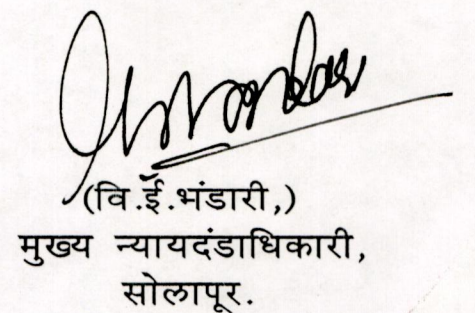 (वि.ई.भंडारी,)
मुख्य न्यायदंडाधिकारी,
सोलापूर.